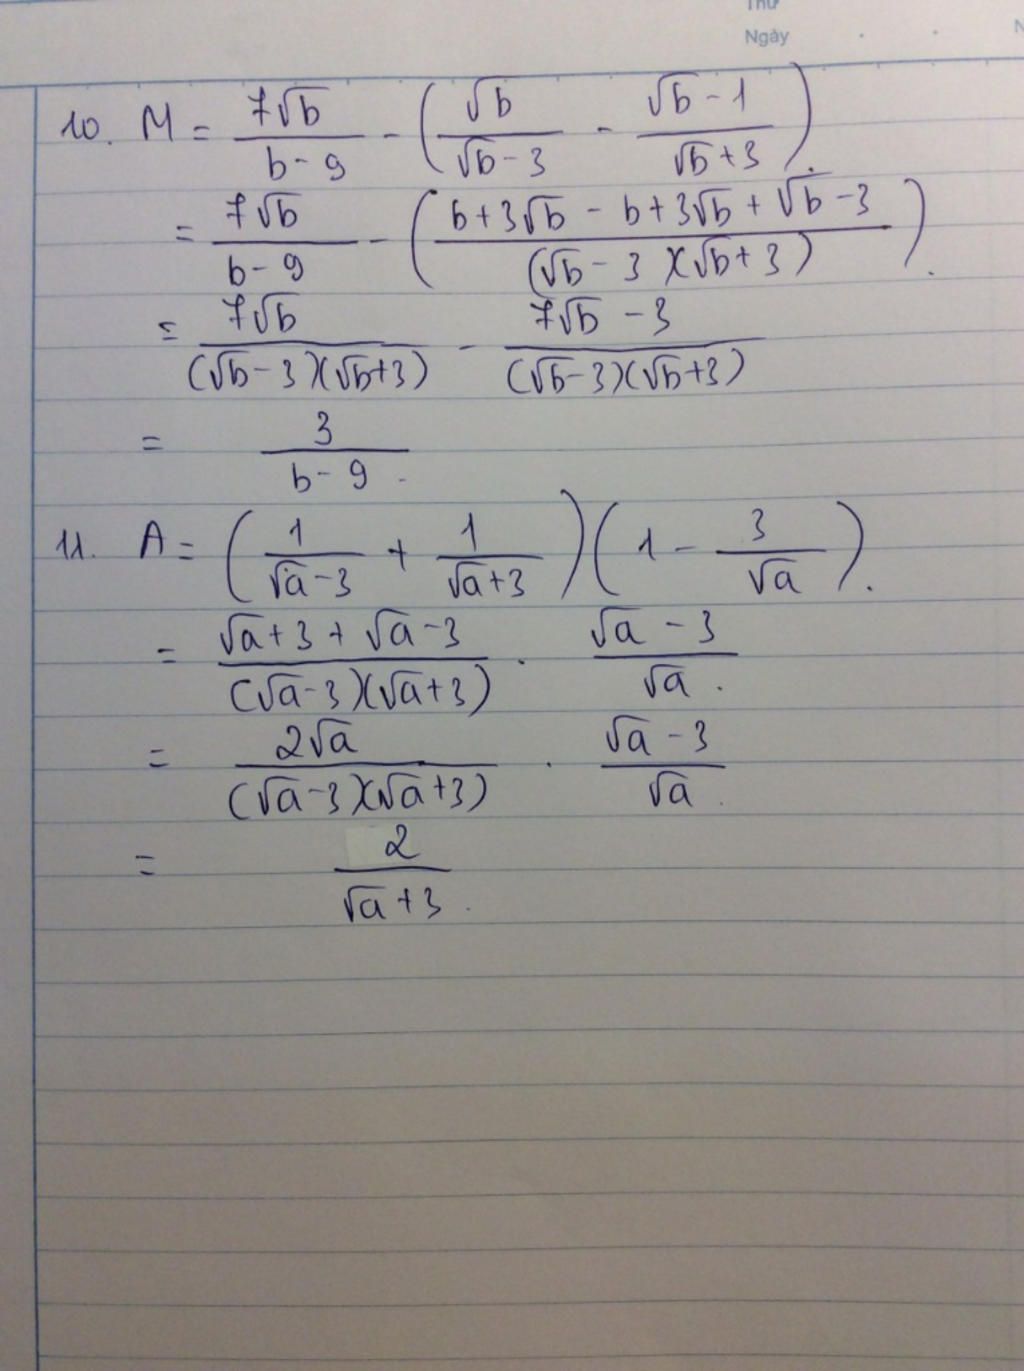 Thứ
Ngày
10. M = 7√b / (b - 9) - ( √b / (√b - 3) - (√b - 1) / (√b + 3) ).
= 7√b / (b - 9) - ( (b + 3√b - b + 3√b + √b - 3) / ((√b - 3)(√b + 3)) ).
= 7√b / ((√b - 3)(√b + 3)) - (7√b - 3) / ((√b - 3)(√b + 3))
= 3 / (b - 9).
11. A = ( 1 / (√a - 3) + 1 / (√a + 3) ) ( 1 - 3 / √a ).
= (√a + 3 + √a - 3) / ((√a - 3)(√a + 3)) . (√a - 3) / √a.
= 2√a / ((√a - 3)(√a + 3)) . (√a - 3) / √a.
= 2 / (√a + 3).